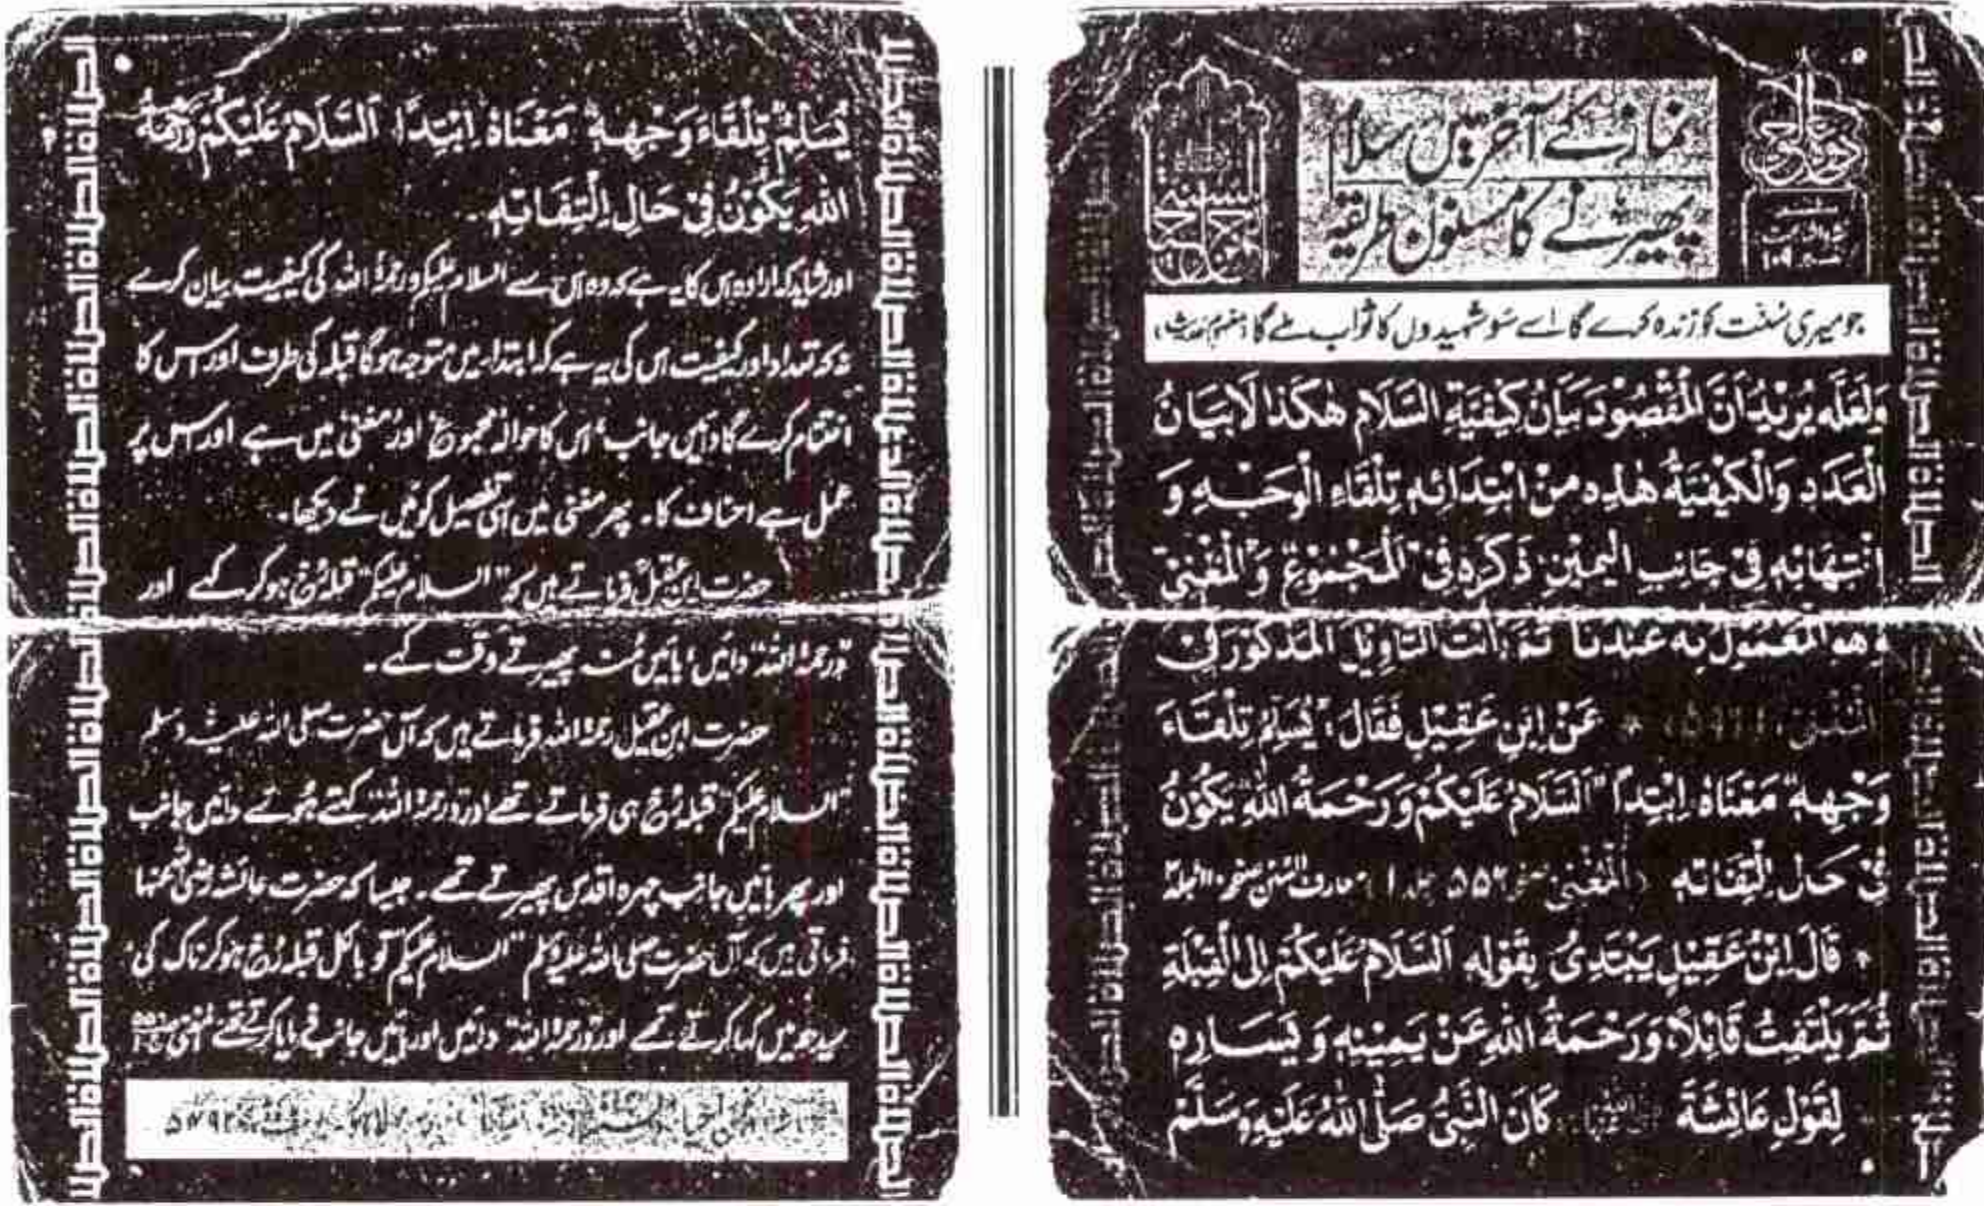 نماز کے آخر میں سلام
پھیرنے کا مسنون طریقہ
جو میری سنت کو زندہ کرے گا اسے سو شہیدوں کا ثواب ملے گا (مفہوم حدیث)
وَلَعَلَّه يُرِيْدُ اَنَّ الْمَقْصُوْدَ بَيَانُ كَيْفِيَّةِ السَّلَامِ هٰكَذَا لَا بَيَانُ
الْعَدَدِ وَالْكَيْفِيَّةُ هٰذِه مِنْ ابْتِدَائِهٖ تِلْقَاءِ الْوَجْهِ وَ
اِنْتِهَائِهٖ فِيْ جَانِبِ الْيَمِيْنِ ذَكَرَه فِيْ الْمَجْمُوْعْ وَ الْمُغْنِيْ
وهو المعمول به عندنا ثم رأيت التأويل المذكور في
المغني عَنْ اِبْنِ عَقِيْلٍ فَقَالَ، يُسَلِّمُ تِلْقَاءَ
وَجْهِهٖ مَعْنَاهُ اِبْتِدَأَ "اَلسَّلَامُ عَلَيْكُمْ وَرَحْمَةُ اللهِ يَكُوْنُ
فِيْ حَالِ اِلْتِفَاتِهٖ (المُغْنِي صفحہ ۵۵۲ جلد ۱) معارف السنن صفحہ ۱۱۰ جلد
قَالَ اِبْنُ عَقِيْلٍ يَبْتَدِئُ بِقَوْلِهٖ اَلسَّلَامُ عَلَيْكُمْ اِلَى الْقِبْلَةِ
ثُمَّ يَلْتَفِتُ قَائِلاً، وَرَحْمَةُ اللهِ عَنْ يَمِيْنِهٖ وَ يَسَارِهٖ
لِقَوْلِ عَائِشَةَ كَانَ النَّبِيُّ صَلَّى اللهُ عَلَيْهِ وَسَلَّمْ
يُسَلِّمُ تِلْقَاءَ وَجْهِهٖ مَعْنَاهُ اِبْتِدَأَ اَلسَّلَامُ عَلَيْكُمْ وَرَحْمَةُ
اللهِ يَكُوْنُ فِيْ حَالِ اِلْتِفَاتِهٖ۔
اور شاید کہ ارادہ اس کا یہ ہے کہ وہ اس سے السلام علیکم ورحمۃ اللہ کی کیفیت بیان کرے
نہ کہ تعداد اور کیفیت اس کی یہ ہے کہ ابتدا میں متوجہ ہوگا قبلہ کی طرف اور اس کا
اختتام کرے گا دائیں جانب، اس کا حوالہ مجموع اور مغنی میں ہے اور اس پر
عمل ہے احناف کا۔ پھر مغنی میں اسی تفصیل کو میں نے دیکھا۔
حضرت ابن عقیلؒ فرماتے ہیں کہ "السلام علیکم" قبلہ رخ ہو کر کہے اور
"ورحمۃ اللہ" دائیں، بائیں منہ پھیرتے وقت کہے۔
حضرت ابن عقیل رحمۃ اللہ فرماتے ہیں کہ آں حضرت صلی اللہ علیہ وسلم
"السلام علیکم" قبلہ رخ ہی فرماتے تھے اور "ورحمۃ اللہ" کہتے ہوئے دائیں جانب
اور پھر بائیں جانب چہرہ اقدس پھیرتے تھے۔ جیسا کہ حضرت عائشہ رضی اللہ عنہا
فرماتی ہیں کہ آں حضرت صلی اللہ علیہ وسلم "السلام علیکم" تو بالکل قبلہ رخ ہو کر ناک کی
سیدھ میں کہا کرتے تھے اور "ورحمۃ اللہ" دائیں اور بائیں جانب فرمایا کرتے تھے مغنی